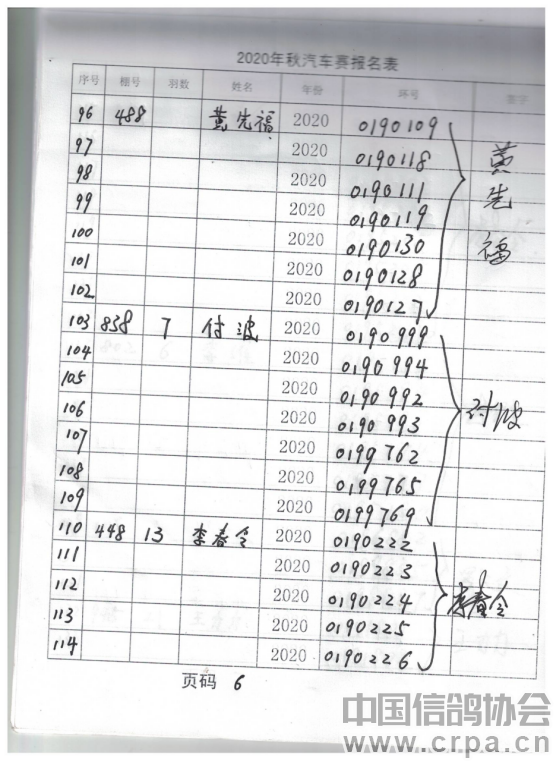 2020年秋汽车赛报名表
序号 棚号 羽数 姓名 年份 环号 签字
96 488 黄先福 2020 0190109 黄先福
97 2020 0190118
98 2020 0190111
99 2020 0190119
100 2020 0190130
101 2020 0190128
102 2020 0190127
103 838 7 付波 2020 0190999 付波
104 2020 0190994
105 2020 0190992
106 2020 0190993
107 2020 0199762
108 2020 0199765
109 2020 0199769
110 448 13 李春令 2020 0190222 李春令
111 2020 0190223
112 2020 0190224
113 2020 0190225
114 2020 0190226
页码 6
中国信鸽协会
www.crpa.cn